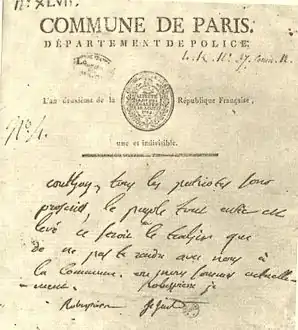 N.º XLVII.
COMMUNE DE PARIS.
DÉPARTEMENT DE POLICE
Le
L'an deuxième de la République Française,
une et indivisible.
couthon, tous les patriotes sont
proscrits, le peuple tout entier est
levé ce seroit le trahir que
de ne pas te rendre avec nous à
la Commune où nous sommes actuelle-
ment. Robespierre j
Robespierre St Just